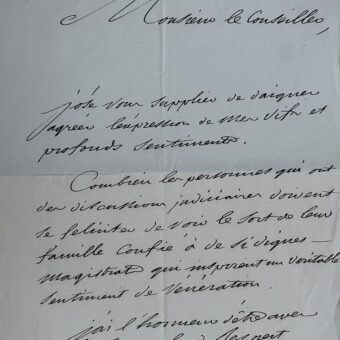 Monsieur le Conseiller,
j'ose vous supplier de daigner
agréer l'expression de mes vifs et
profonds sentiments.
Combien les personnes qui ont
des discussions judiciaires doivent
se féliciter de voir le sort de leur
famille confié à de si dignes
magistrats qui inspirent un véritable
sentiment de vénération.
j'ai l'honneur d'être avec
Respect